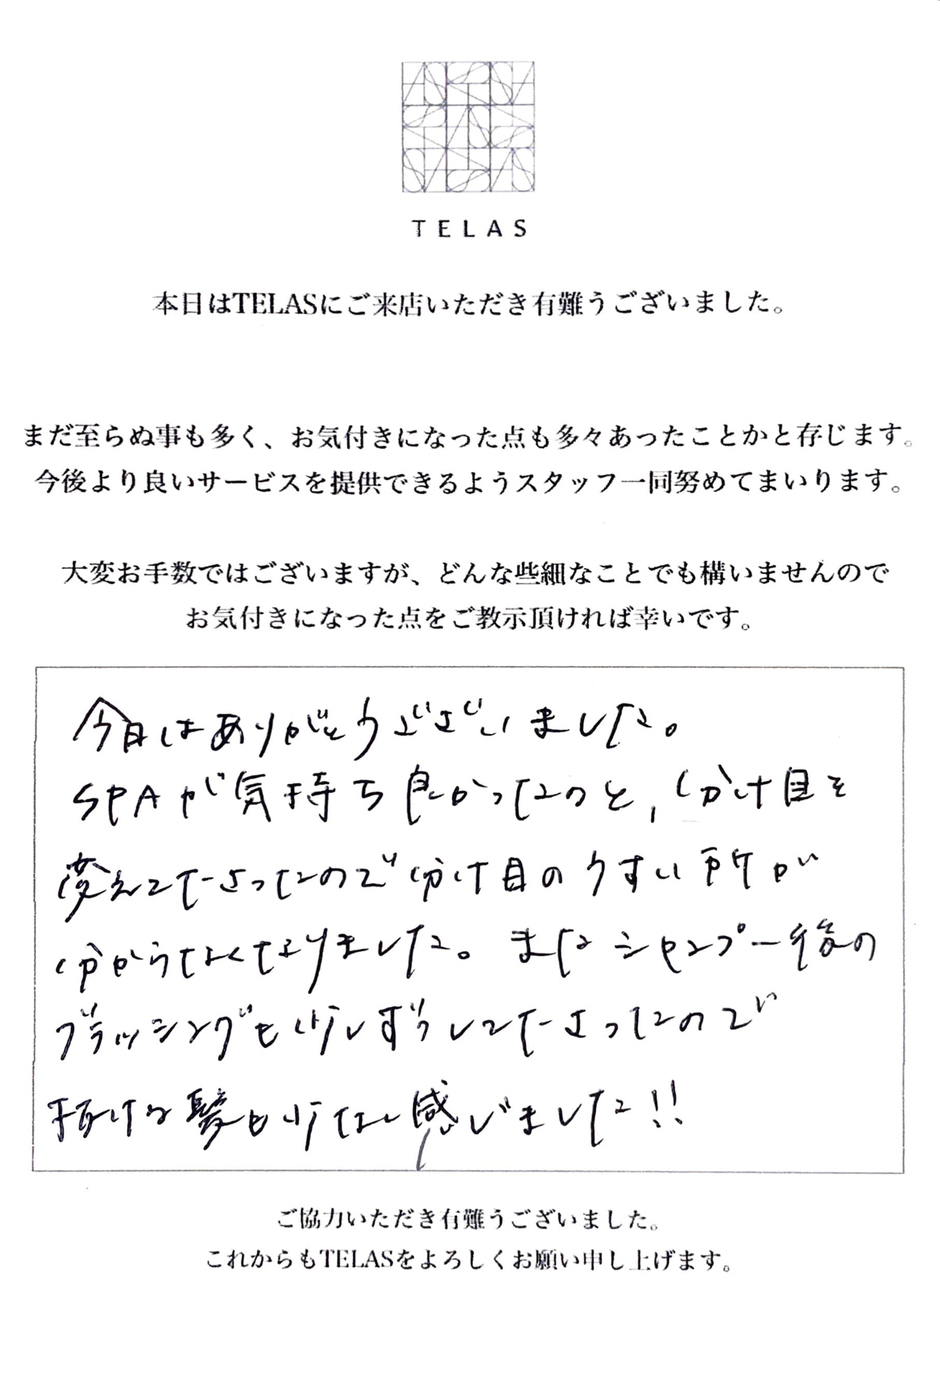 TELAS
本日はTELASにご来店いただき有難うございました。
まだ至らぬ事も多く、お気付きになった点も多々あったことかと存じます。
今後より良いサービスを提供できるようスタッフ一同努めてまいります。
大変お手数ではございますが、どんな些細なことでも構いませんので
お気付きになった点をご教示頂ければ幸いです。
今日はありがとうございました。
SPAが気持ち良かったのと、分け目を
変えて下さったので分け目のうすい所が
分からなくなりました。またシャンプー後の
ブラッシングも少しずつして下さったので
抜ける髪も少なく感じました!!
ご協力いただき有難うございました。
これからもTELASをよろしくお願い申し上げます。